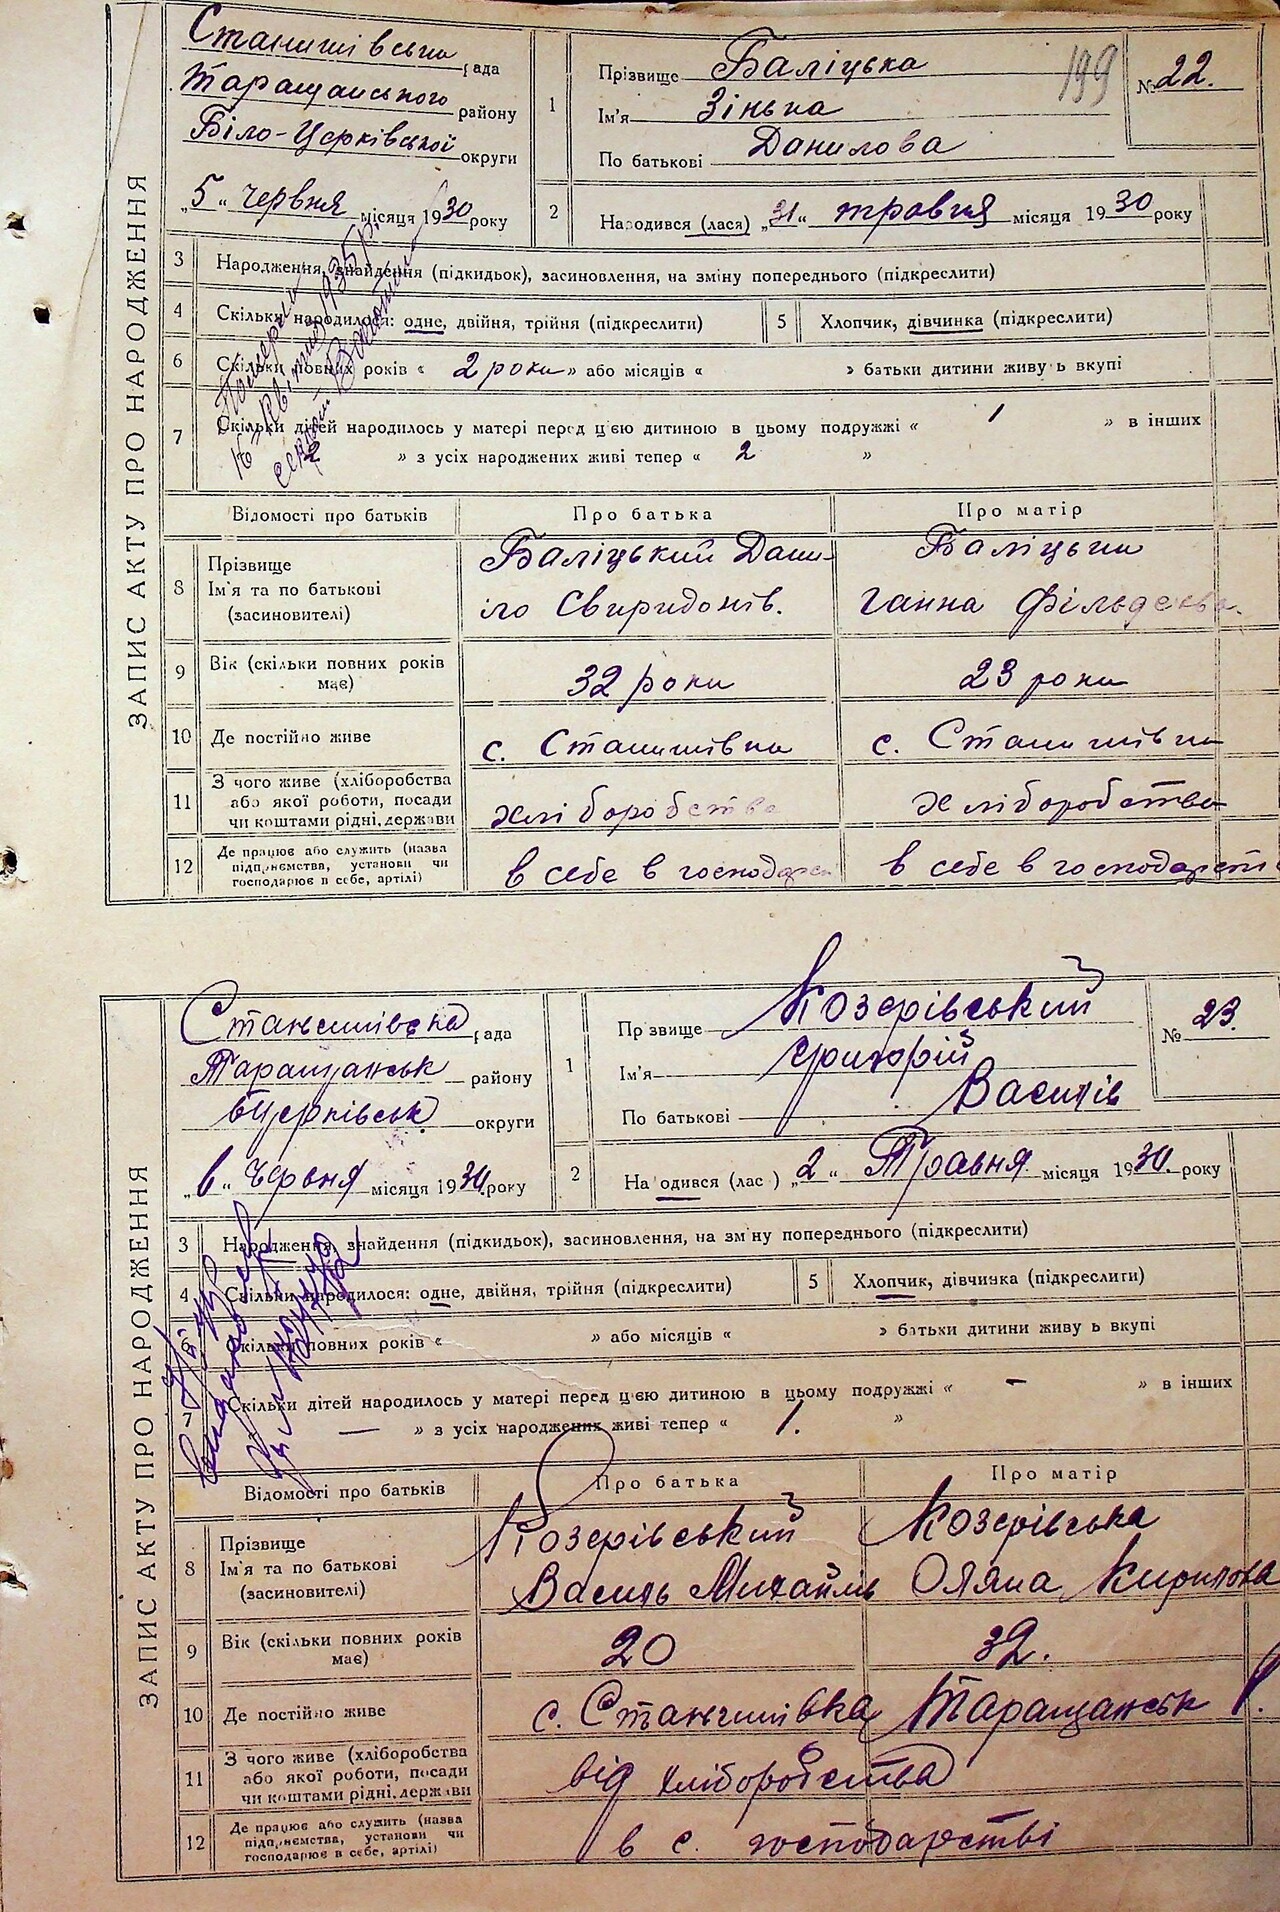 ЗАПИС АКТУ ПРО НАРОДЖЕННЯ
Станишівська рада
Таращанського району
Біло-Церківської округи
„5“ червня місяця 1930 року
1 Прізвище Баліцька
199
№ 22.
Ім'я Зінька
По батькові Данилова
2 Народився (лася) „31“ травня місяця 1930 року
3 Народження, знайдення (підкидьок), засиновлення, на зміну попереднього (підкреслити)
4 Скільки народилося: одне, двійня, трійня (підкреслити)
5 Хлопчик, дівчинка (підкреслити)
6 Скільки повних років « 2 роки » або місяців « » батьки дитини живуть вкупі
7 Скільки дітей народилось у матері перед цією дитиною в цьому подружжі « 1 » в інших
2 » з усіх народжених живі тепер « 2 »
1935 р.
Відомості про батьків Про батька Про матір
8 Прізвище
Ім'я та по батькові
(засиновителі)
Баліцький Дани-
ло Свиридонів.
Баліцька
Ганна
9 Вік (скільки повних років
має)
32 роки
23 роки
10 Де постійно живе
с. Станишівка
с. Станишівка
11 З чого живе (хліборобства
або якої роботи, посади
чи коштами рідні, держави
хліборобства
хліборобства
12 Де працює або служить (назва
підприємства, установи чи
господарює в себе, артілі)
в себе в господарст
в себе в господарстві
ЗАПИС АКТУ ПРО НАРОДЖЕННЯ
Станишівська рада
Таращанськ району
БЦерківськ. округи
„6“ Червня місяця 1930. року
1 Прізвище Козерівський
№ 23.
Ім'я Григорій
По батькові Василів
2 Народився (лас ) „2“ Травня місяця 1930. року
3 Народження, знайдення (підкидьок), засиновлення, на зміну попереднього (підкреслити)
4 Скільки народилося: одне, двійня, трійня (підкреслити)
5 Хлопчик, дівчинка (підкреслити)
6 Скільки повних років « » або місяців « » батьки дитини живуть вкупі
7 Скільки дітей народилось у матері перед цією дитиною в цьому подружжі « - » в інших
— » з усіх народжених живі тепер « 1. »
Відомості про батьків Про батька Про матір
8 Прізвище
Ім'я та по батькові
(засиновителі)
Козерівський
Василь Михайлів
Козерівська
Оляна Кирилова
9 Вік (скільки повних років
має)
20
32.
10 Де постійно живе
с. Станишівка Таращанськ р.
11 З чого живе (хліборобства
або якої роботи, посади
чи коштами рідні, держави
від хліборобства
12 Де працює або служить (назва
підприємства, установи чи
господарює в себе, артілі)
в с. господарстві